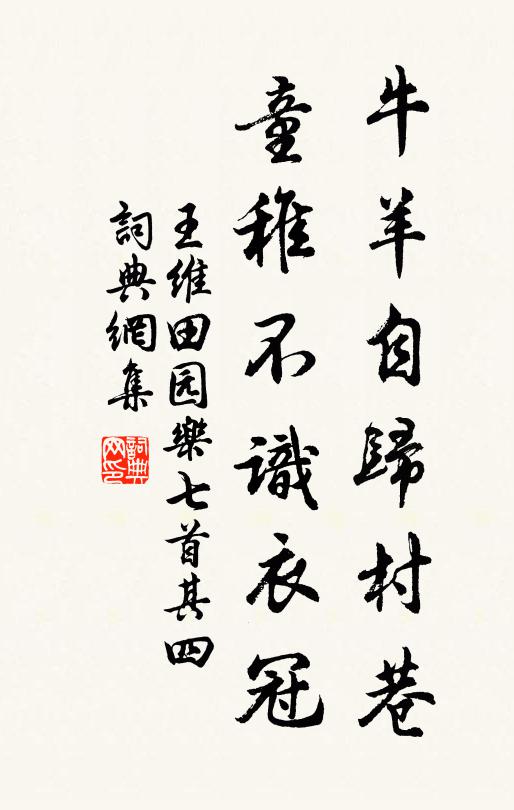 牛羊自歸村巷
童稚不識衣冠
王维田园樂七首其四
詞典網集
詞典網印